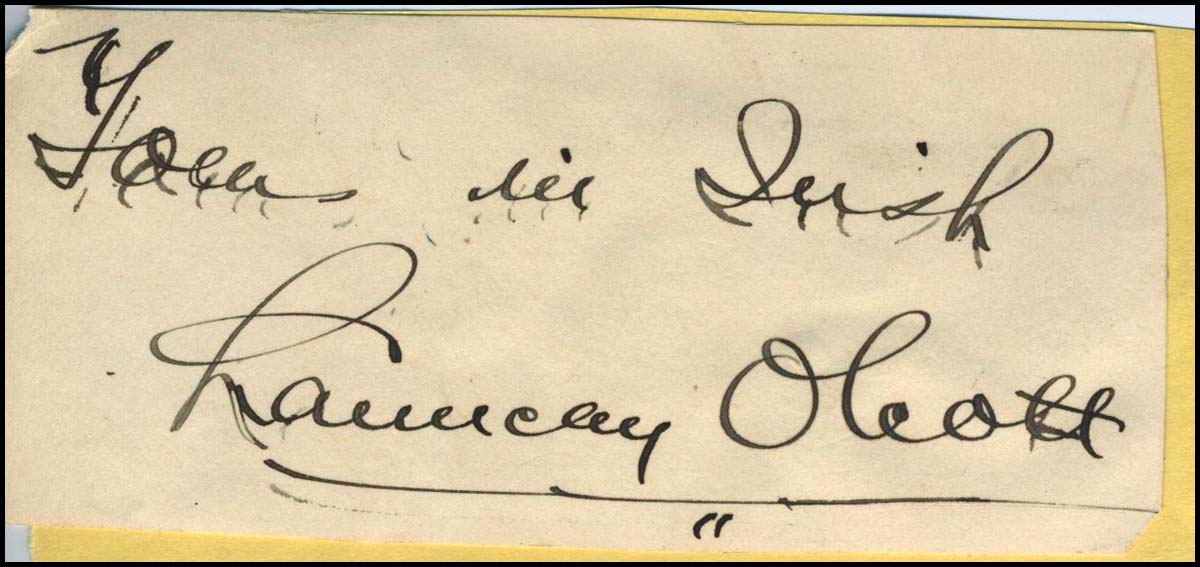 Yours in Irish
Chauncey Olcott
"